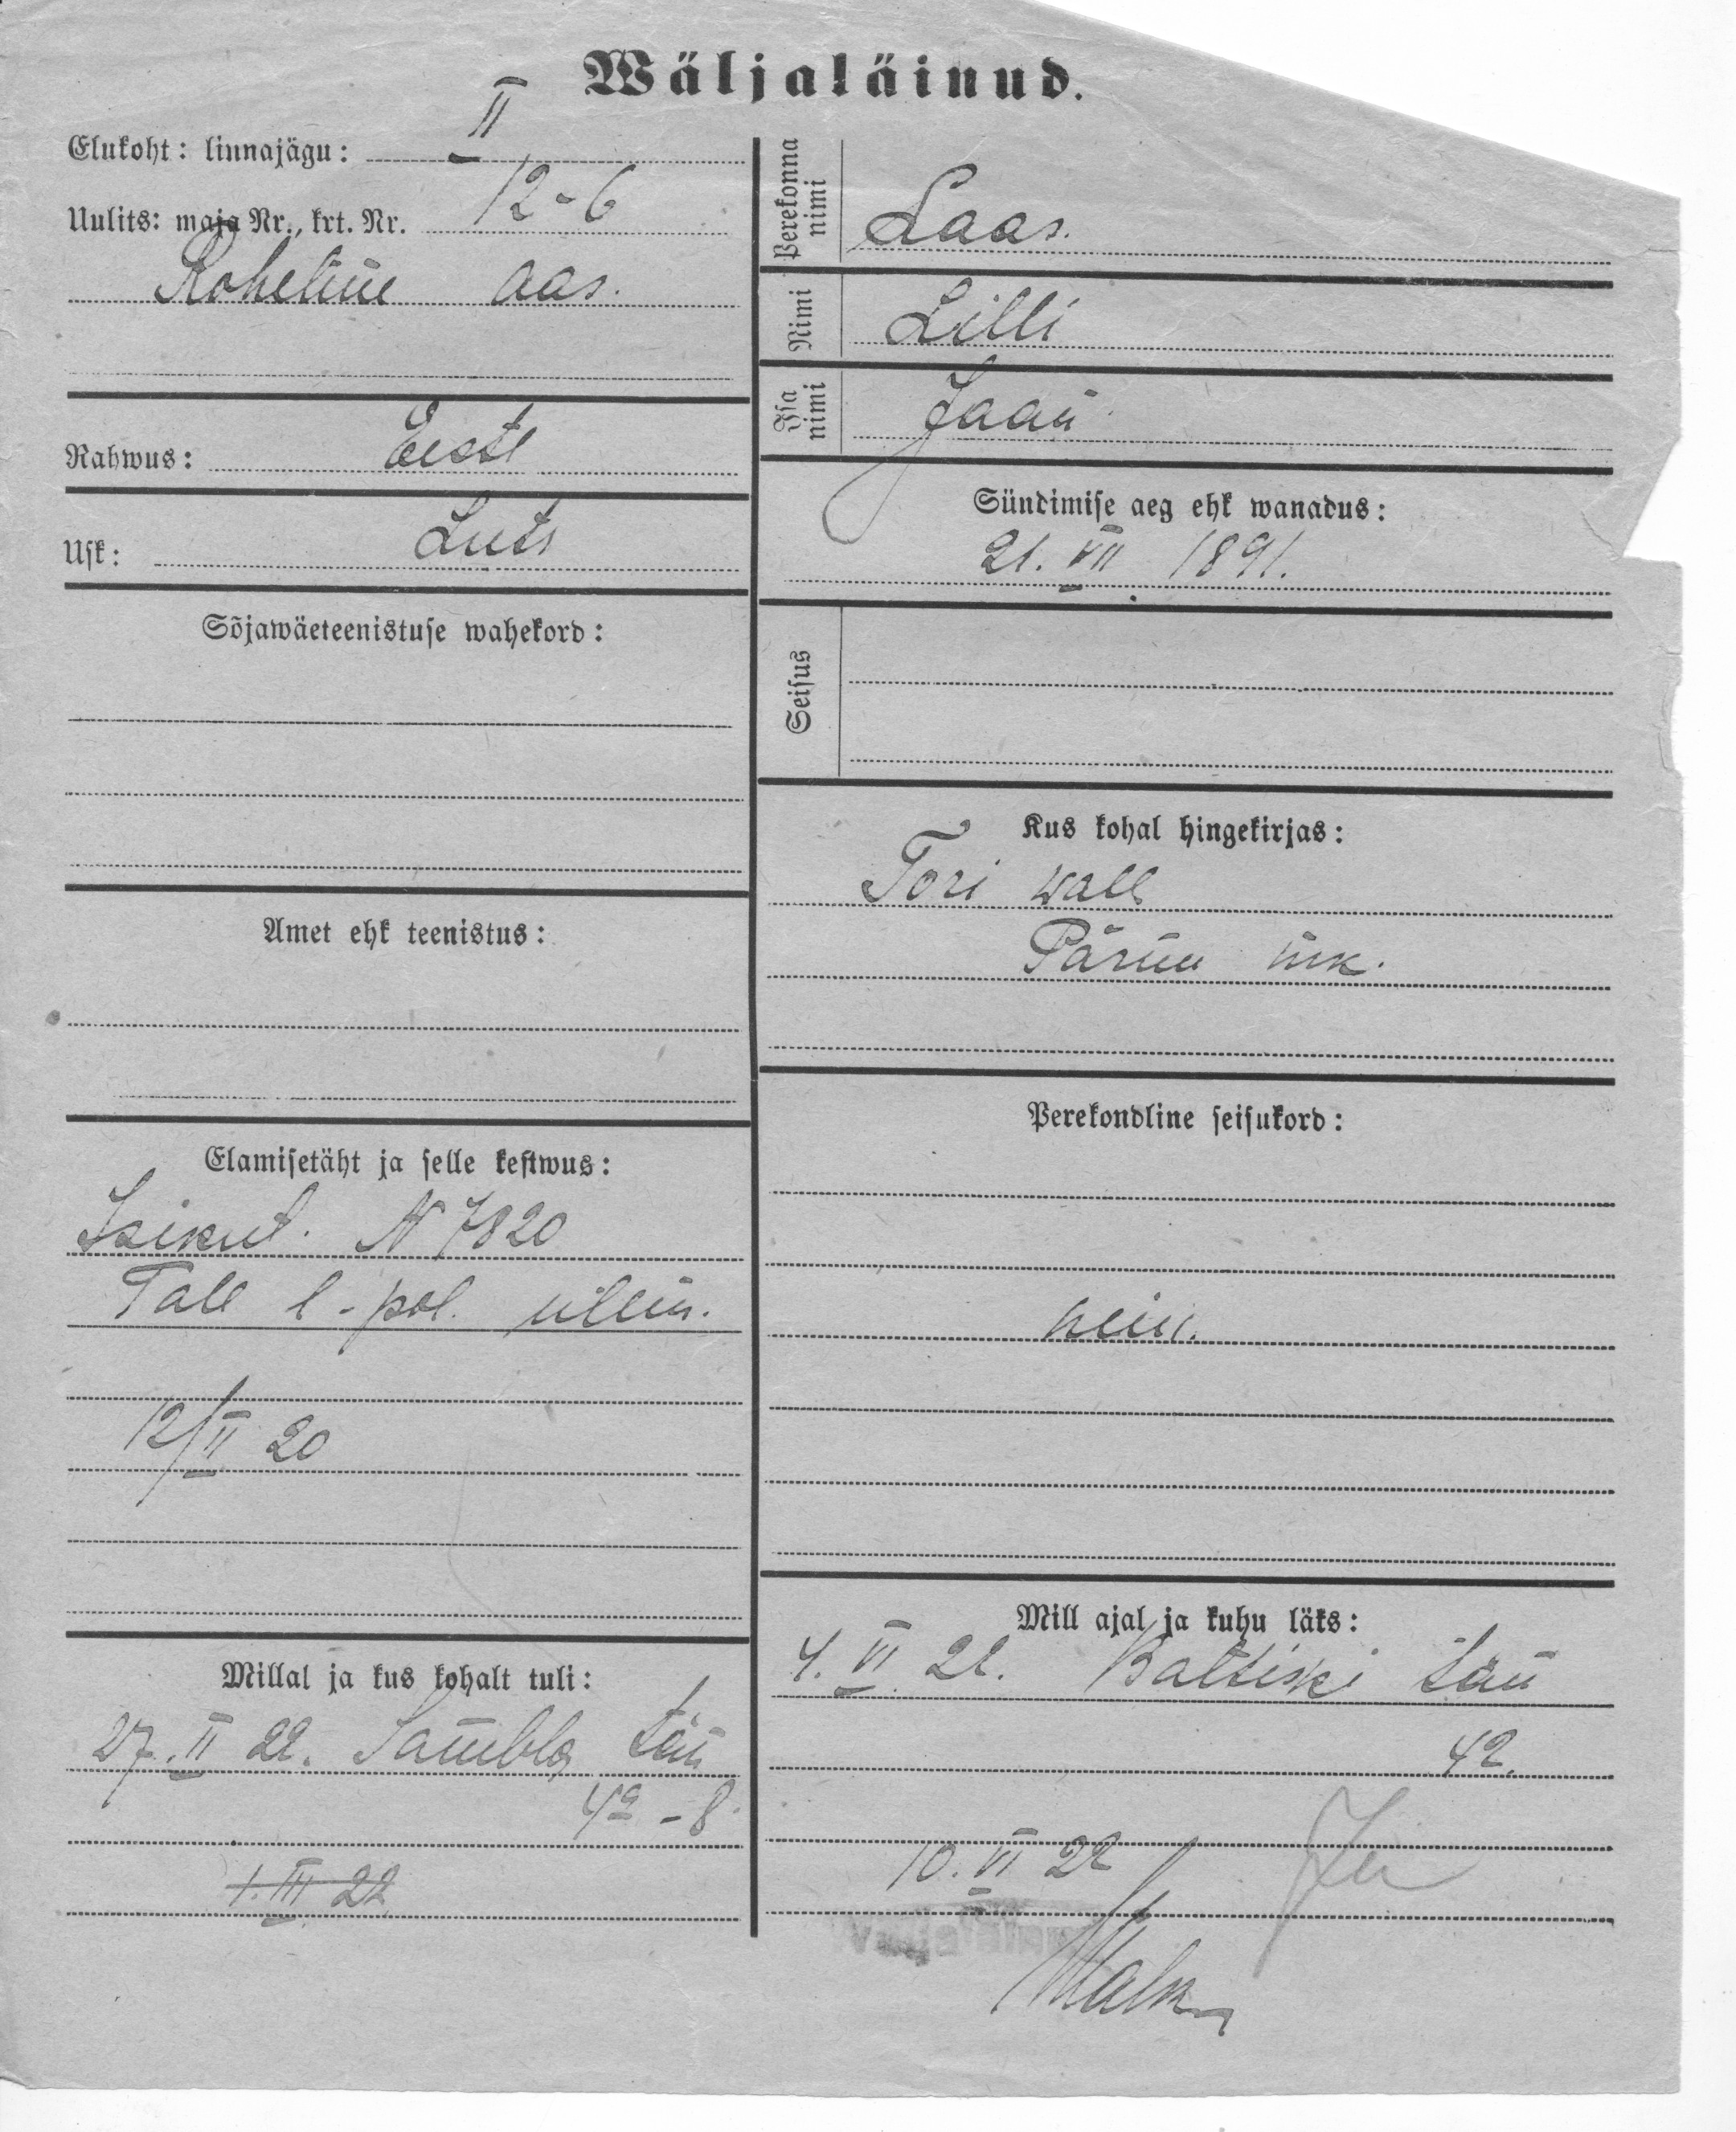 Wäljaläinud.
Elukoht: linnajägu: II
Uulits: maja Nr., krt. Nr. 12-6
Roheline aas.
Rahwus: Eesti
Usk: Luts
Sõjawäeteenistuse wahekord:
Amet ehk teenistus:
Elamisetäht ja selle kestwus:
Isikut. N 7820
Tall l-pol. ülem.
12/II 20
Millal ja kus kohalt tuli:
27.II 22. Sambla tän
4a - 8.
1.III 22
Perekonna nimi Laas.
Nimi Lilli
Isa nimi Jaan
Sündimise aeg ehk wanadus:
21. VII 1891.
Seisus
Kus kohal hingekirjas:
Tori wall
Pärnu mk.
Perekondline seisukord:
neiu.
Mill ajal ja kuhu läks:
4. VI 22. Baltiski tän
42.
10. VI 22